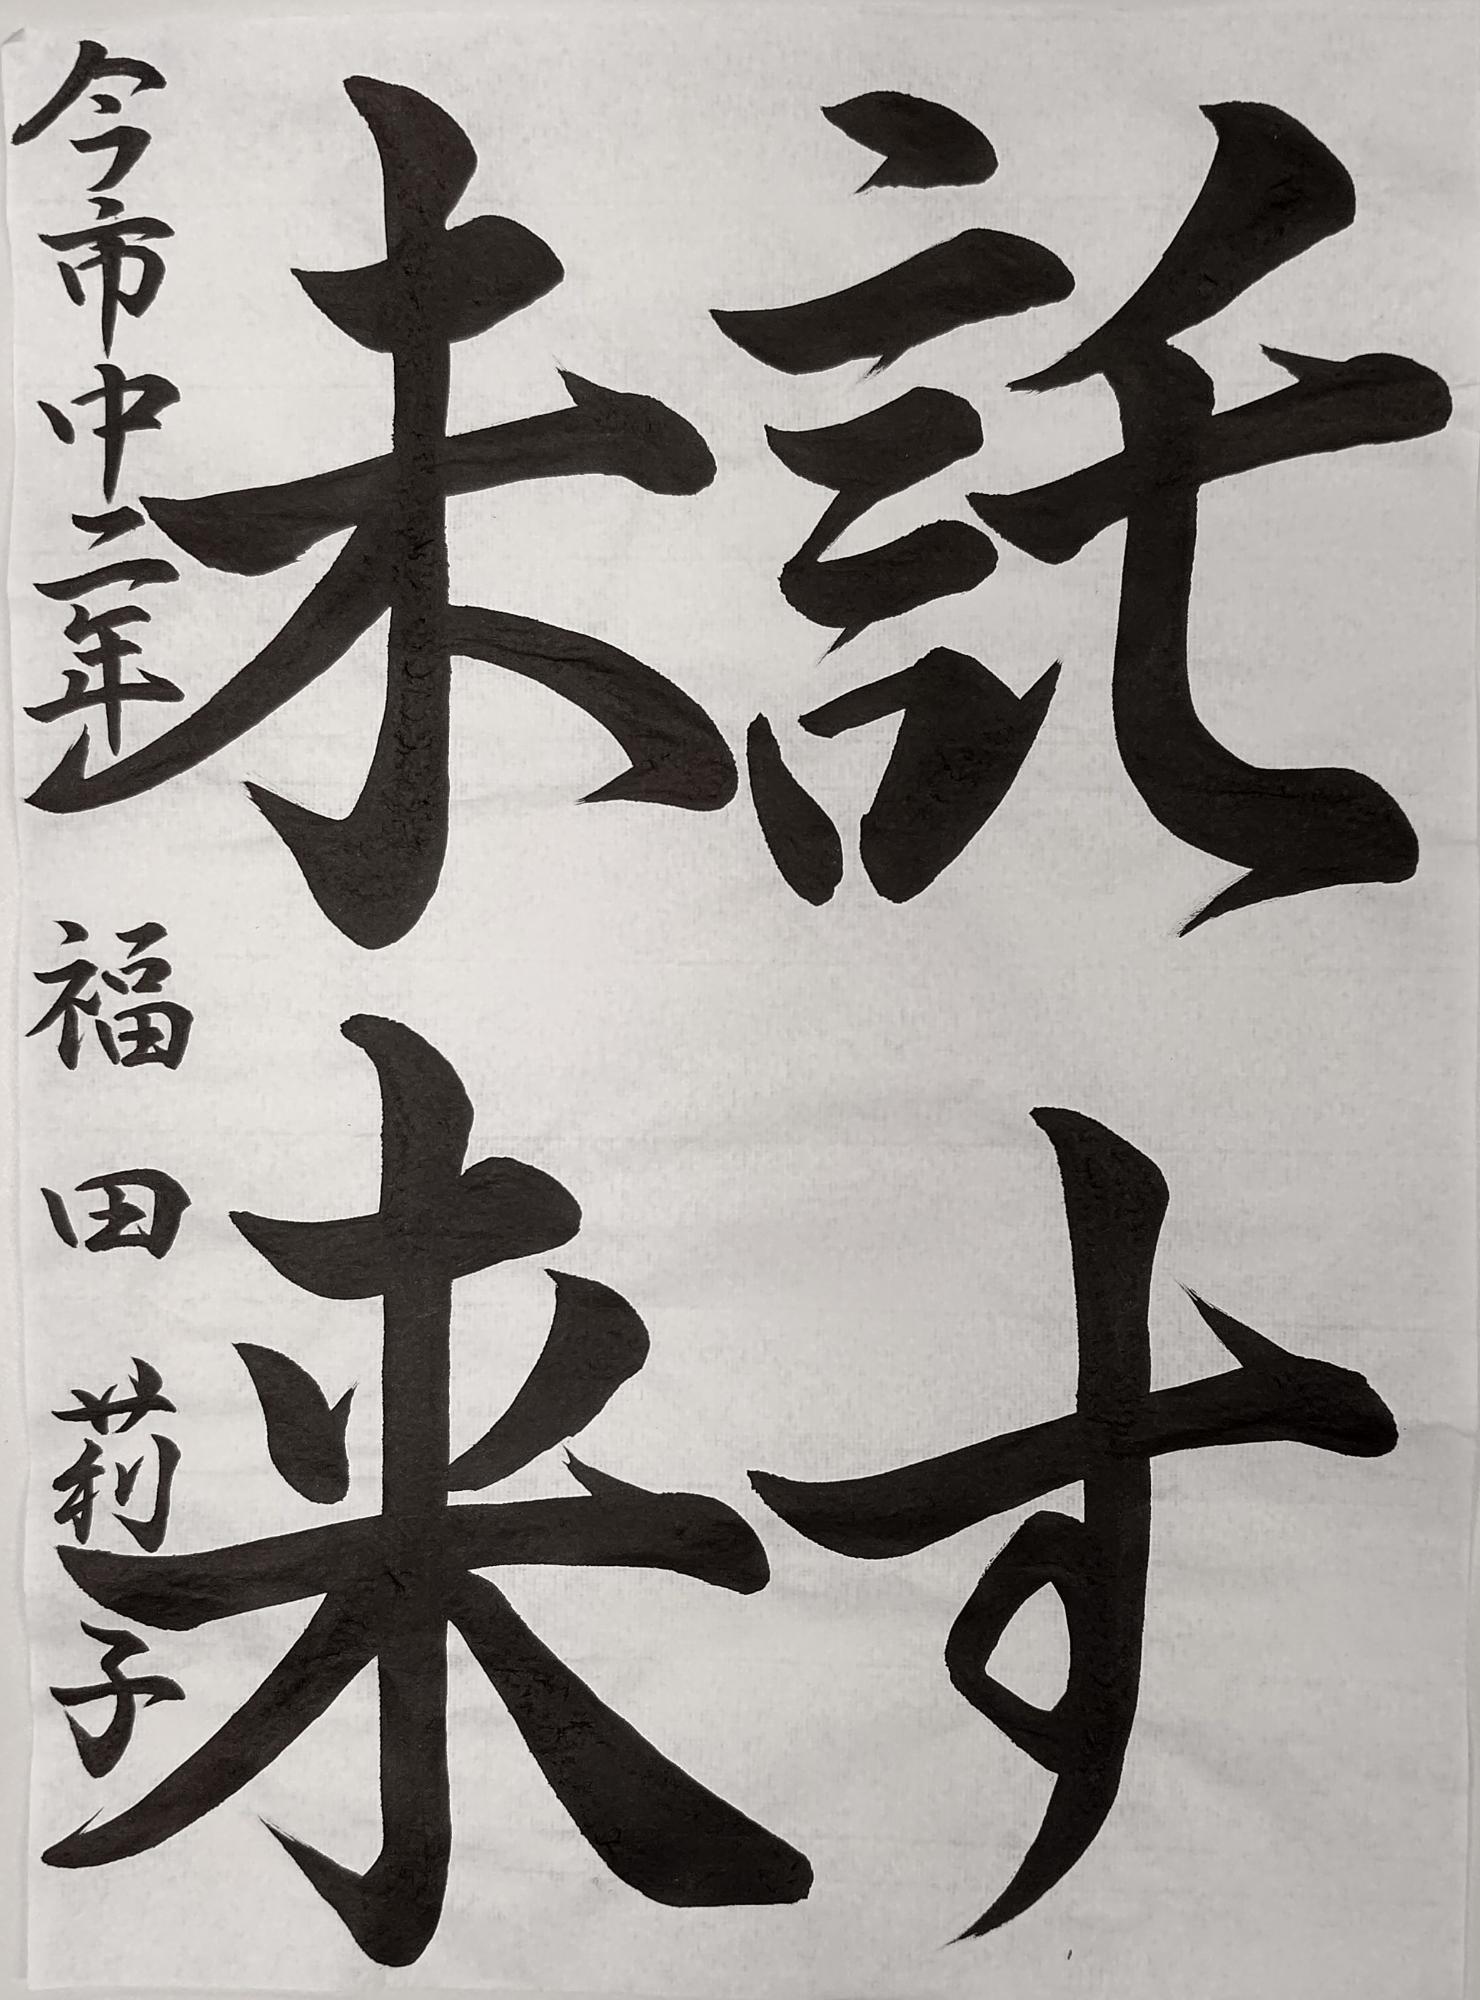 託す
未来
今市中二年 福田莉子